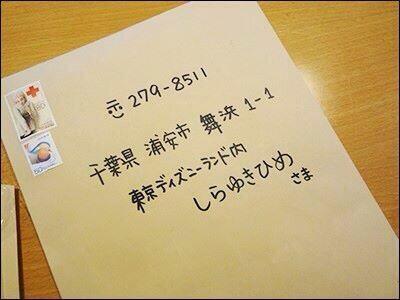 〠279-8511
千葉県 浦安市 舞浜 1-1
東京ディズニーランド内
しらゆきひめ
さま